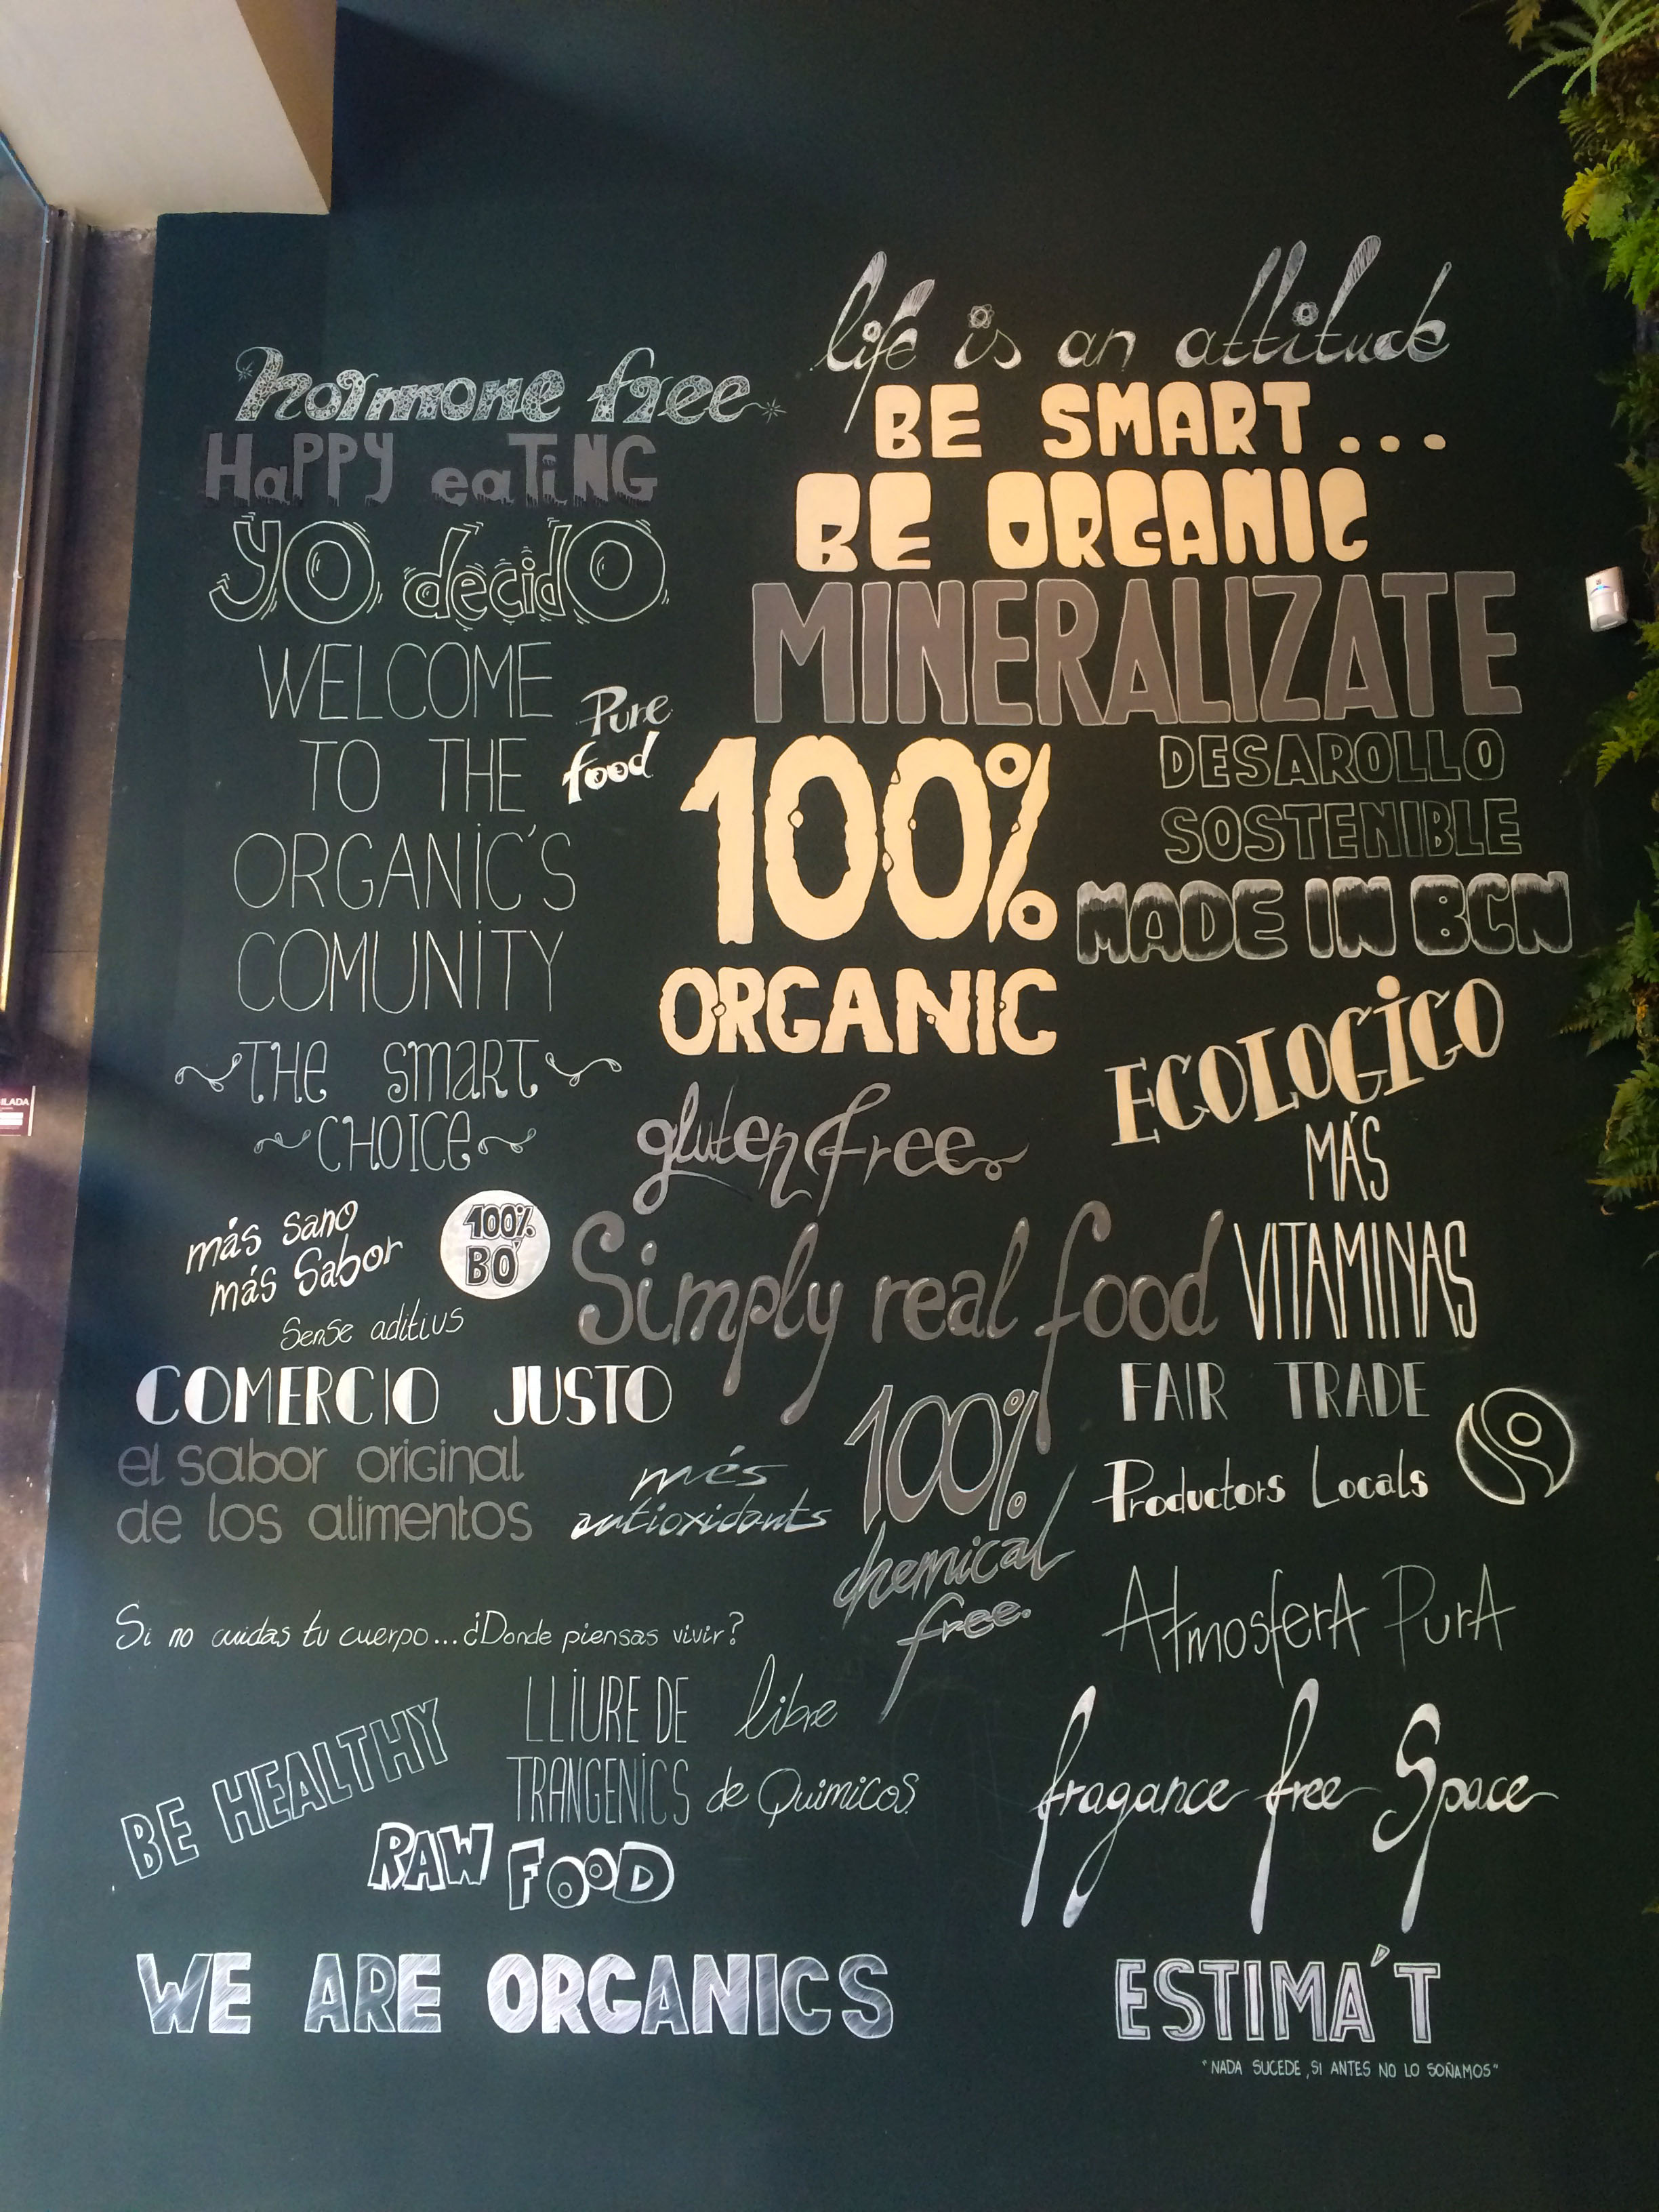 life is an attitude
hormone free
BE SMART...
HaPPY eaTiNG
BE ORGANIC
yO decidO
MINERALIZATE
WELCOME
TO THE
ORGANiC'S
COMUNiTY
Pure
food
100%
ORGANIC
DESAROLLO
SOSTENIBLE
MADE IN BCN
THe SmaRT
CHOICe
ECOLOGiCO
gluten free
MÁS
VITAMINAS
más sano
más Sabor
100%
BO
Sense aditius
Simply real food
COMERCIO JUSTO
FAIR TRADE
el sabor original
de los alimentos
més
antioxidants
100%
chemical
free.
Productors Locals
Si no cuidas tu cuerpo...¿Donde piensas vivir?
AtmosferA PurA
BE HEALTHY
LLiURE DE
TRANGENiCS
libre
de Quimicos
RAW FOOD
fragance free Space
WE ARE ORGANICS
ESTIMA'T
"NADA SUCEDE, SI ANTES NO LO SOÑAMOS"